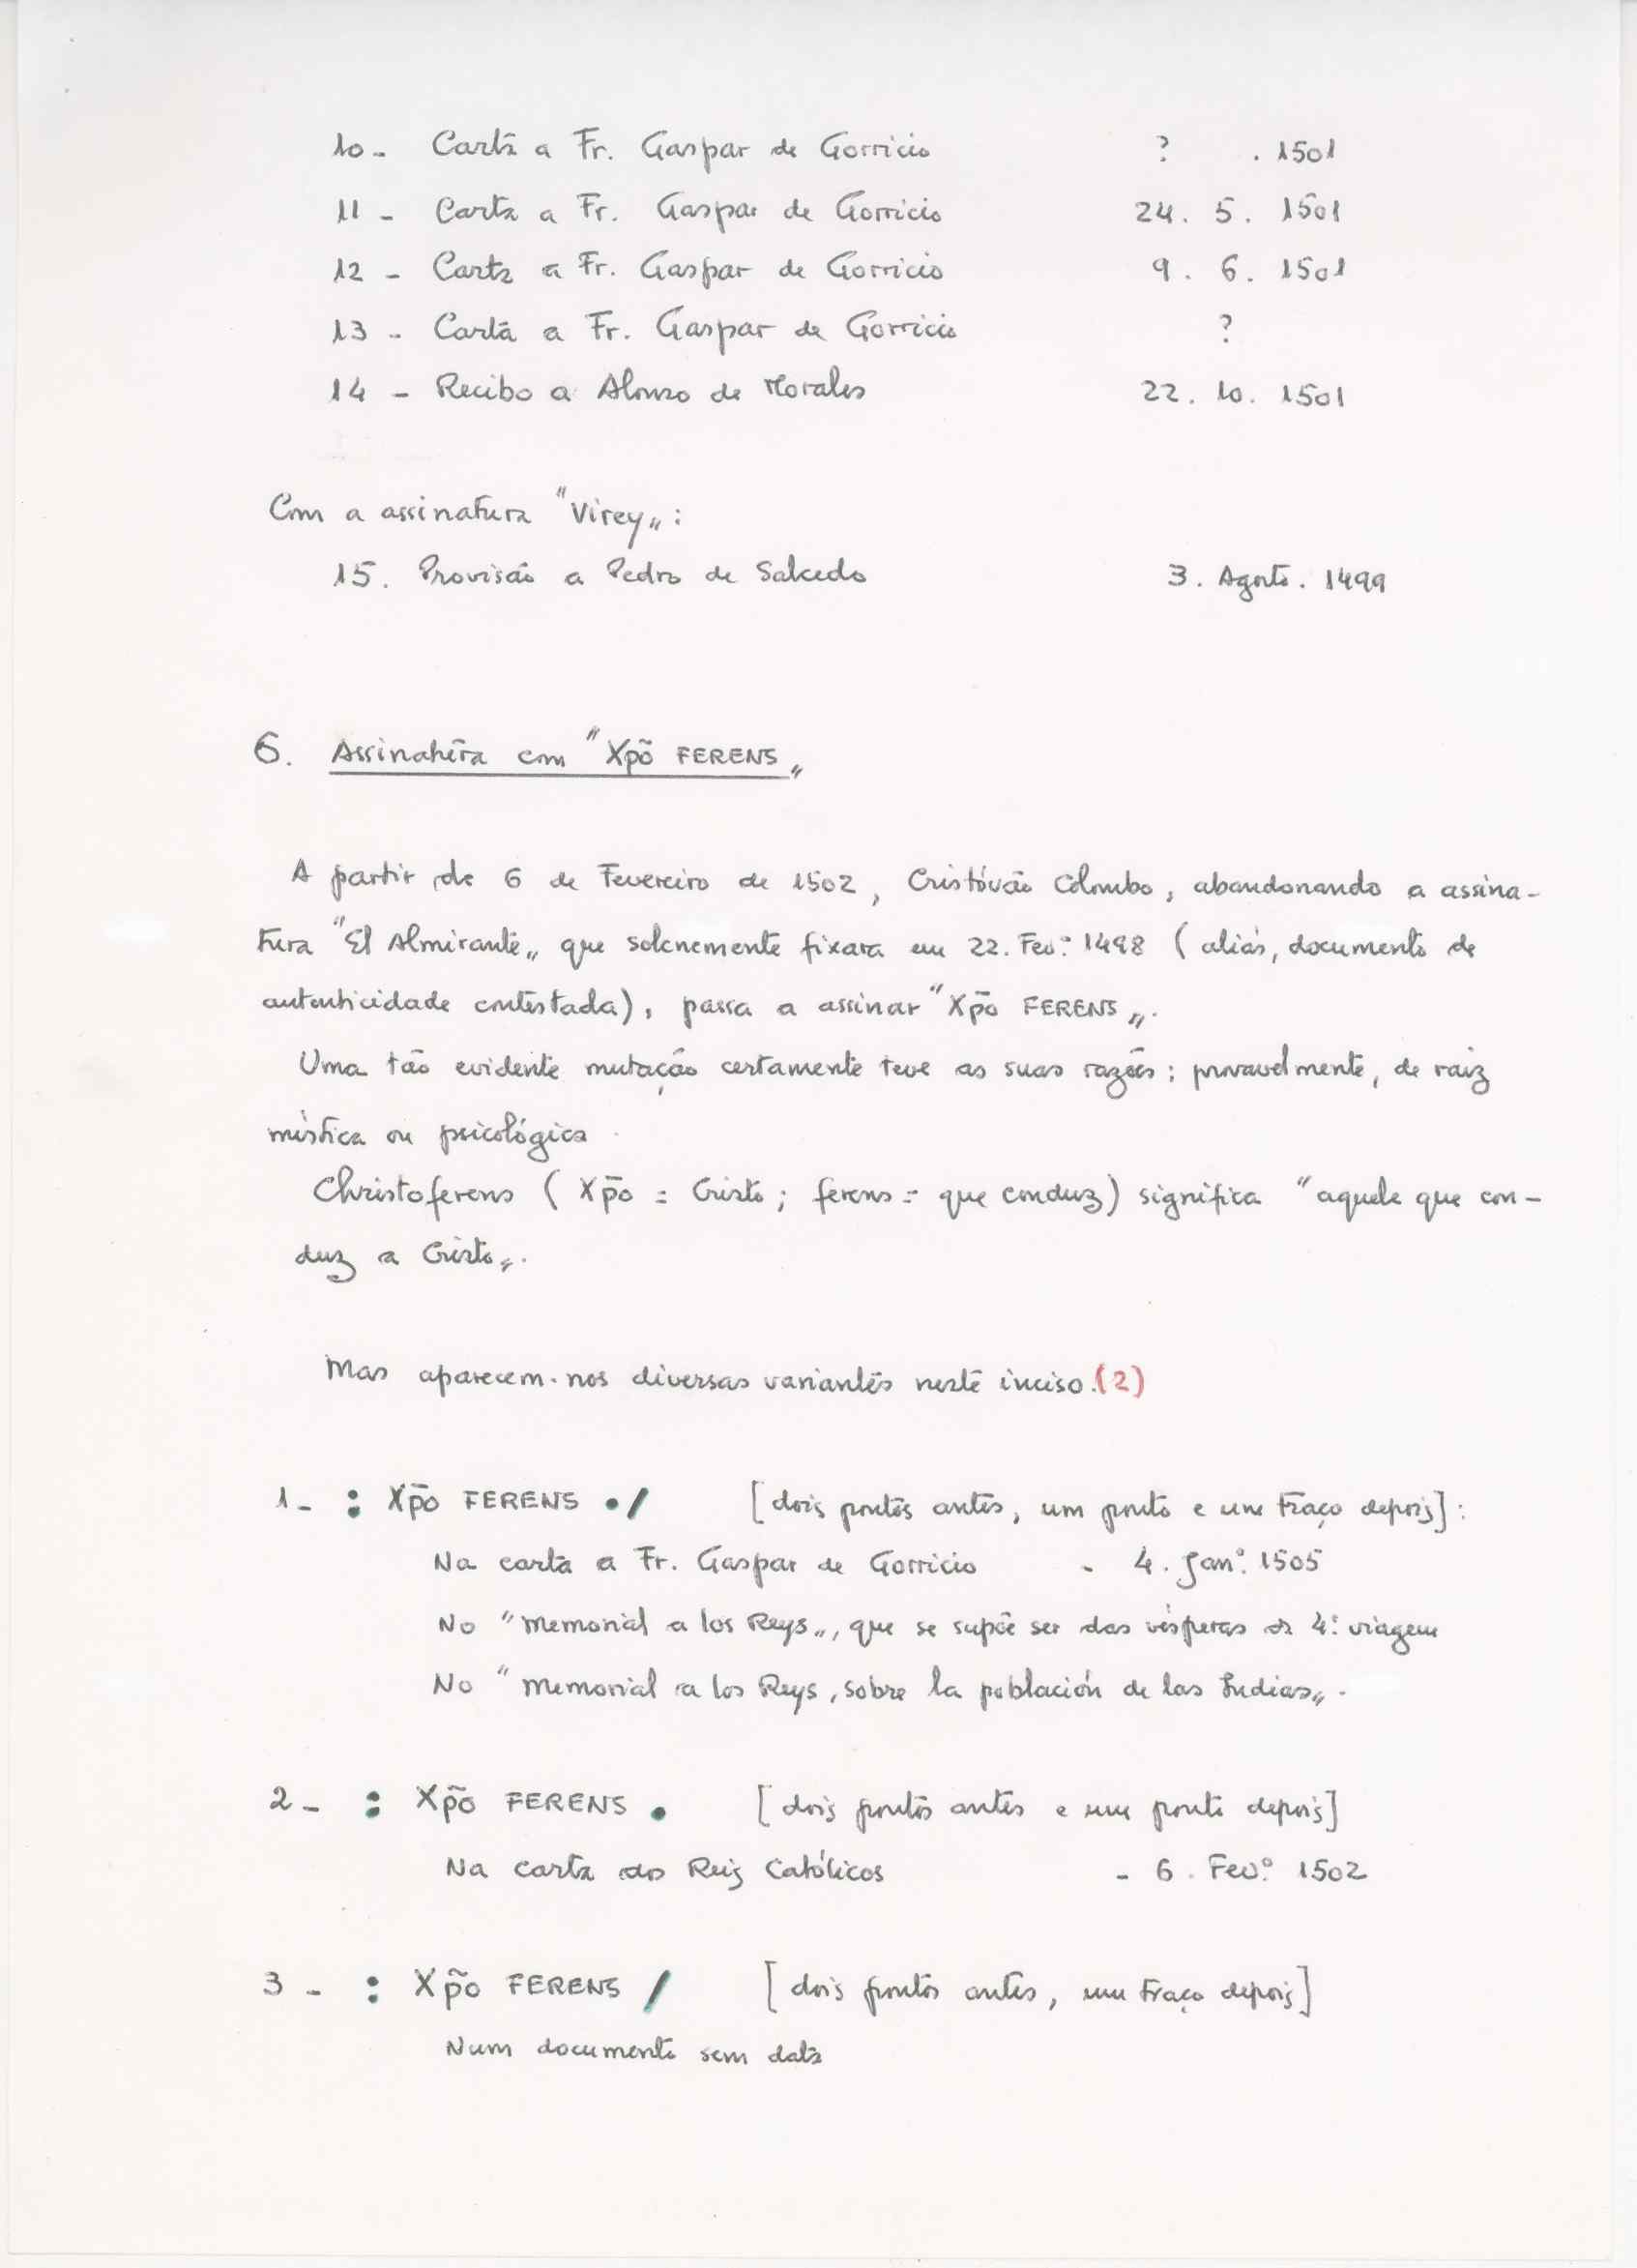 10 - Carta a Fr. Gaspar de Gorricio ? . 1501
11 - Carta a Fr. Gaspar de Gorricio 24. 5. 1501
12 - Carta a Fr. Gaspar de Gorricio 9. 6. 1501
13 - Carta a Fr. Gaspar de Gorricio ?
14 - Recibo a Alonso de Morales 22. 10. 1501
Com a assinatura "Virey„:
15. Provisão a Pedro de Salcedo 3. Agosto. 1499
6. Assinatura com "Xp̃o FERENS„
A partir de 6 de Fevereiro de 1502, Cristóvão Colombo, abandonando a assina-
tura "El Almirante„ que solenemente fixara em 22. Fevº. 1498 (aliás, documento de
autenticidade contestada), passa a assinar "Xp̄o FERENS„.
Uma tão evidente mutação certamente teve as suas razões; provavelmente, de raiz
mística ou psicológica.
Christoferens (Xp̄o = Cristo; ferens = que conduz) significa "aquele que con-
duz a Cristo„.
Mas aparecem-nos diversas variantes neste inciso.(2)
1 - : Xp̄o FERENS ./ [dois pontos antes, um ponto e um traço depois]:
Na carta a Fr. Gaspar de Gorricio - 4. Janº. 1505
No "Memorial a los Reys„, que se supõe ser das vésperas da 4ª. viagem
No "Memorial a los Reys, sobre la población de las Indias„.
2 - : Xp̃o FERENS . [dois pontos antes e um ponto depois]
Na carta aos Reis Católicos - 6. Fevº. 1502
3 - : Xp̃o FERENS / [dois pontos antes, um traço depois]
Num documento sem data